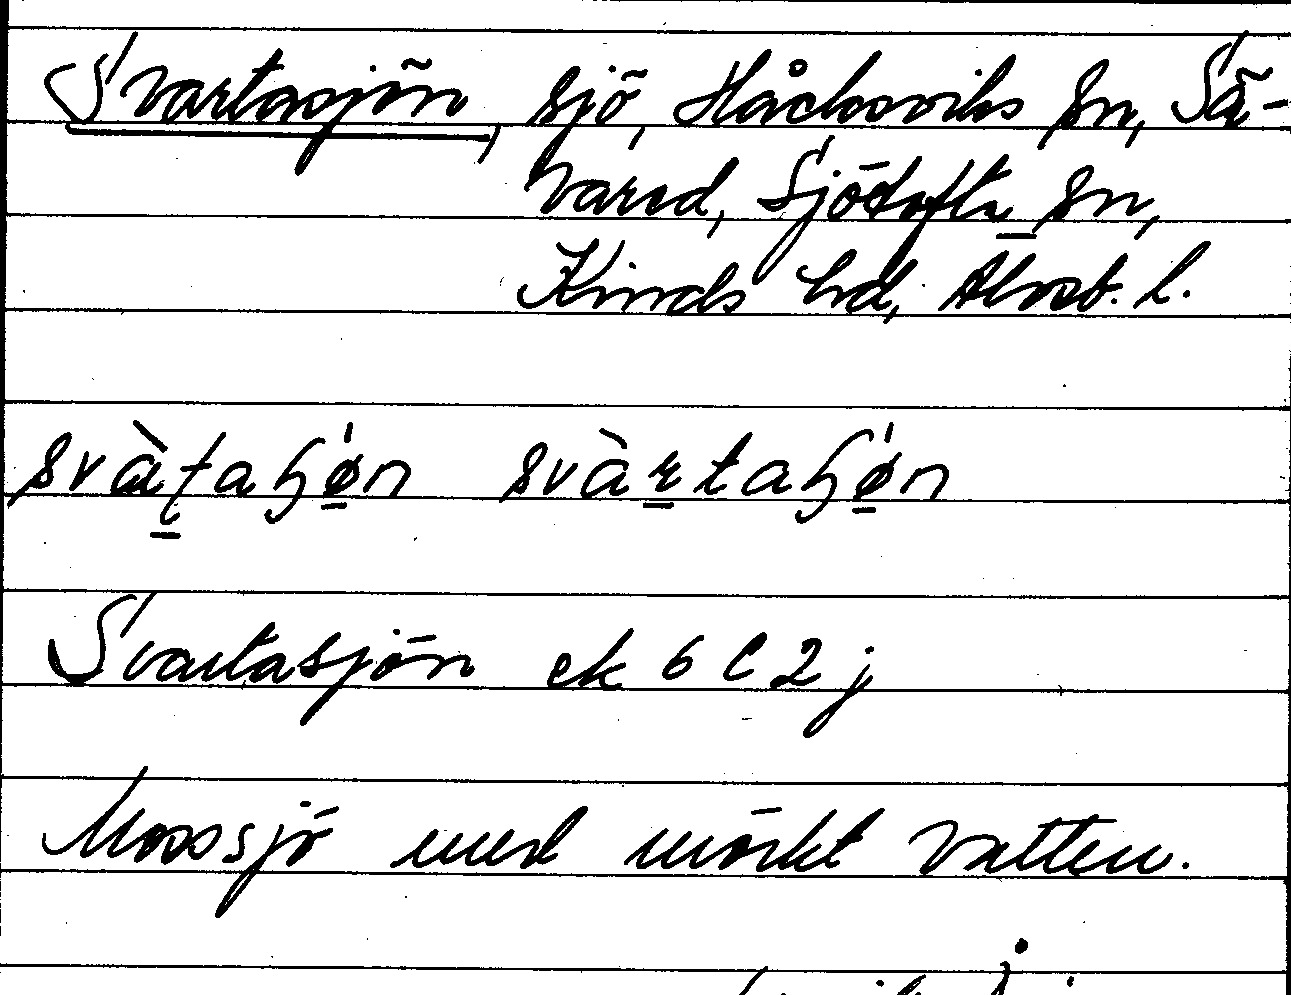 Svartasjön, sjö, Håcksviks sn, Sä-
vared, Sjötofta sn,
Kinds hd, Älvsb. l.
Svartasjön ek 6 C 2 j
Mossjö med mörkt vatten.